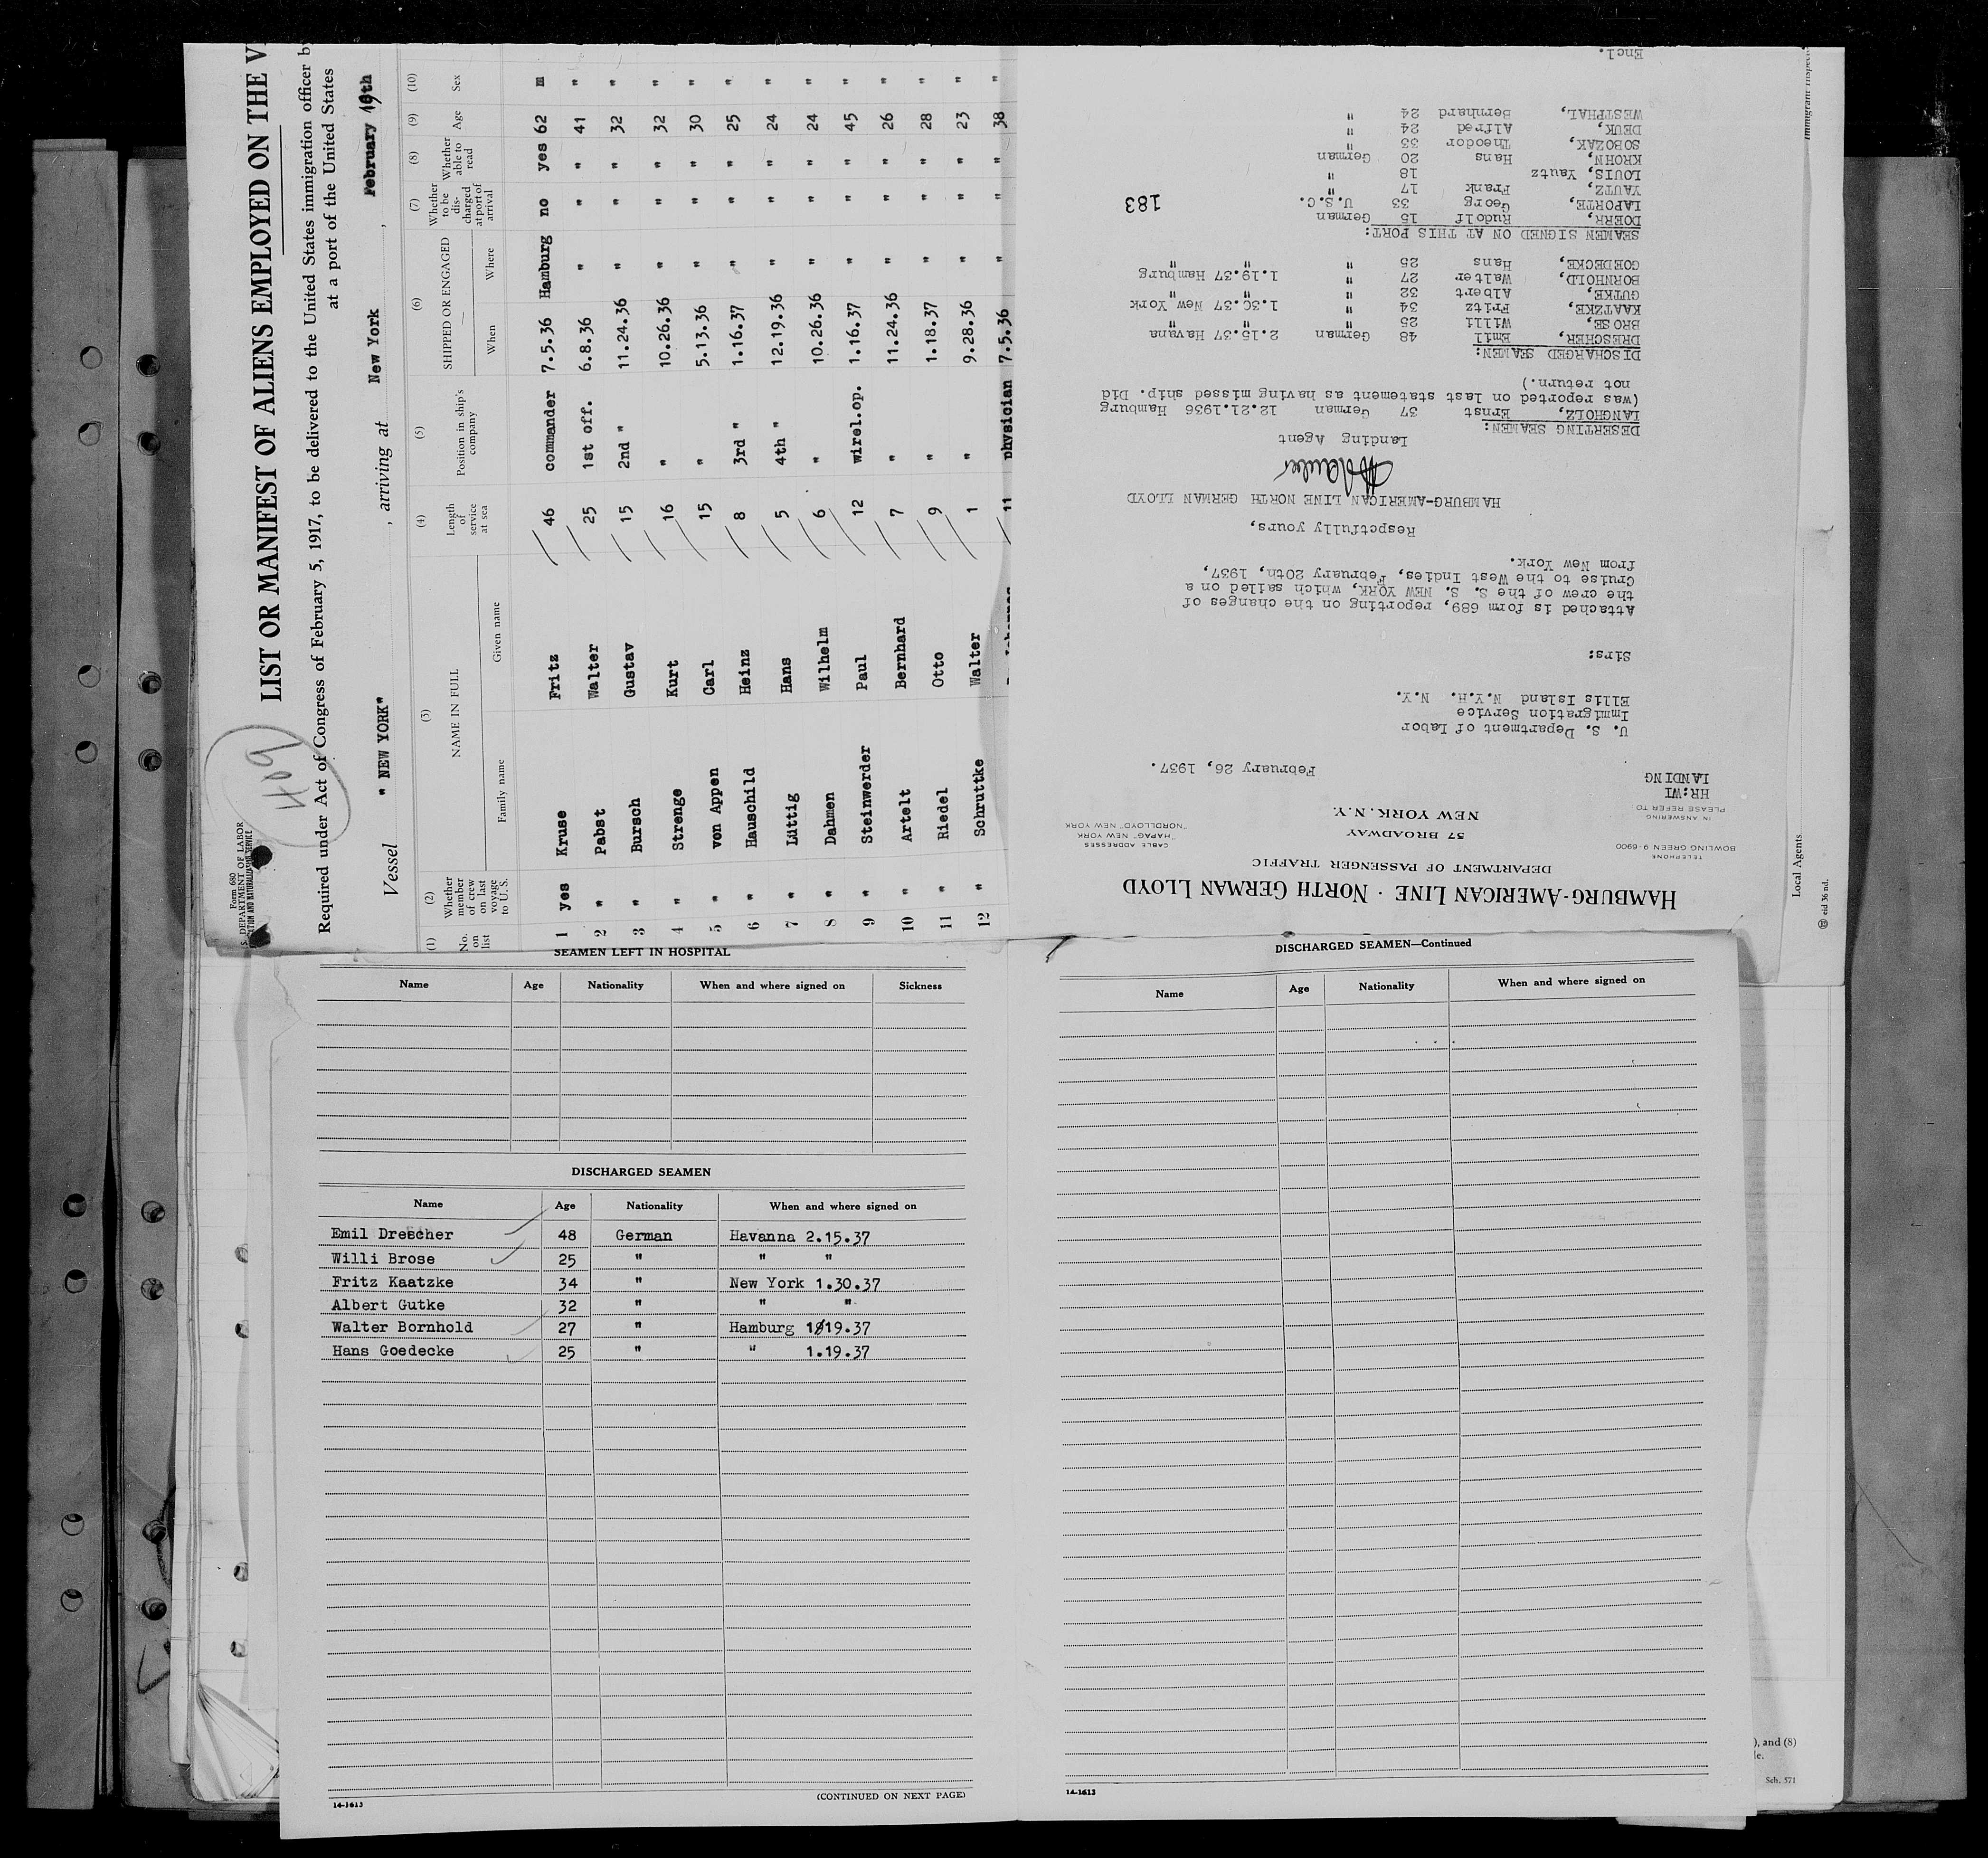 Form 680
DEPARTMENT OF LABOR
LIST OR MANIFEST OF ALIENS EMPLOYED ON THE V
Required under Act of Congress of February 5, 1917, to be delivered to the United States immigration officer by
at a port of the United States
Vessel " NEW YORK" , arriving at New York , February
409
(1) (2) (3) (4) (5) (6) (7) (8) (9) (10)
No. on list Whether member of crew on last voyage to U. S. NAME IN FULL Family name Given name Length of service at sea Position in ship's company SHIPPED OR ENGAGED When Where Whether to be dis- charged at port of arrival Whether able to read Age Sex
1 yes Kruse Fritz 46 commander 7.5.36 Hamburg no yes 62 m
2 " Pabst Walter 25 1st off. 6.8.36 " " " 41 "
3 " Bursch Gustav 15 2nd " 11.24.36 " " " 32 "
4 " Strenge Kurt 16 " 10.26.36 " " " 32 "
5 " von Appen Carl 15 " 5.13.36 " " " 30 "
6 " Hauschild Heinz 8 3rd " 1.16.37 " " " 25 "
7 " Lüttig Hans 5 4th " 12.19.36 " " " 24 "
8 " Dahmen Wilhelm 6 " 10.26.36 " " " 24 "
9 " Steinwerder Paul 12 wirel.op. 1.16.37 " " " 45 "
10 " Artelt Bernhard 7 " 11.24.36 " " " 26 "
11 " Riedel Otto 9 " 1.18.37 " " " 28 "
12 " Schruttke Walter 1 " 9.28.36 " " " 23 "
11 physician 7.5.36 " " " 38 "
HAMBURG-AMERICAN LINE · NORTH GERMAN LLOYD
DEPARTMENT OF PASSENGER TRAFFIC
57 BROADWAY
NEW YORK, N.Y.
TELEPHONE
BOWLING GREEN 9-6900
CABLE ADDRESSES
"HAPAG" NEW YORK
"NORDLLOYD" NEW YORK
IN ANSWERING
PLEASE REFER TO:
HR:WI
LANDING
February 26, 1937.
U. S. Department of Labor
Immigration Service
Ellis Island N.Y.H. N.Y.
Sirs:
Attached is form 689, reporting on the changes of
the crew of the S. S. NEW YORK, which sailed on a
Cruise to the West Indies, February 20th, 1937,
from New York.
Respetfully yours,
HAMBURG-AMERICAN LINE NORTH GERMAN LLOYD
Landing Agent
DESERTING SEAMEN:
LANGHOLZ, Ernst 37 German 12.21.1936 Hamburg
(was reported on last statement as having missed ship. Did
not return.)
DISCHARGED SEAMEN:
DRESCHER, Emil 48 German 2.15.37 Havana
BROSE, Willi 25 " " "
KAATZKE, Fritz 34 " 1.30.37 New York
GUTKE, Albert 32 " " "
BORNHOLD, Walter 27 " 1.19.37 Hamburg
GOEDECKE, Hans 25 " " "
SEAMEN SIGNED ON AT THIS PORT:
DOERR, Rudolf 15 German
LAPORTE, Georg 33 U.S.C.
YAUTZ, Frank 17 "
LOUIS, Yautz 18 "
KROHN, Hans 20 German
SOBOZAK, Theodor 33 "
DEUK, Alfred 24 "
WESTPHAL, Bernhard 24 "
183
Encl.
Local Agents
eld 36 nd.
SEAMEN LEFT IN HOSPITAL
Name Age Nationality When and where signed on Sickness
DISCHARGED SEAMEN
Name Age Nationality When and where signed on
Emil Drescher 48 German Havanna 2.15.37
Willi Brose 25 " " "
Fritz Kaatzke 34 " New York 1.30.37
Albert Gutke 32 " " "
Walter Bornhold 27 " Hamburg 1.19.37
Hans Goedecke 25 " " 1.19.37
(CONTINUED ON NEXT PAGE)
14-1613
DISCHARGED SEAMEN—Continued
Name Age Nationality When and where signed on
14-1613
), and (8)
le.
Sch. 571